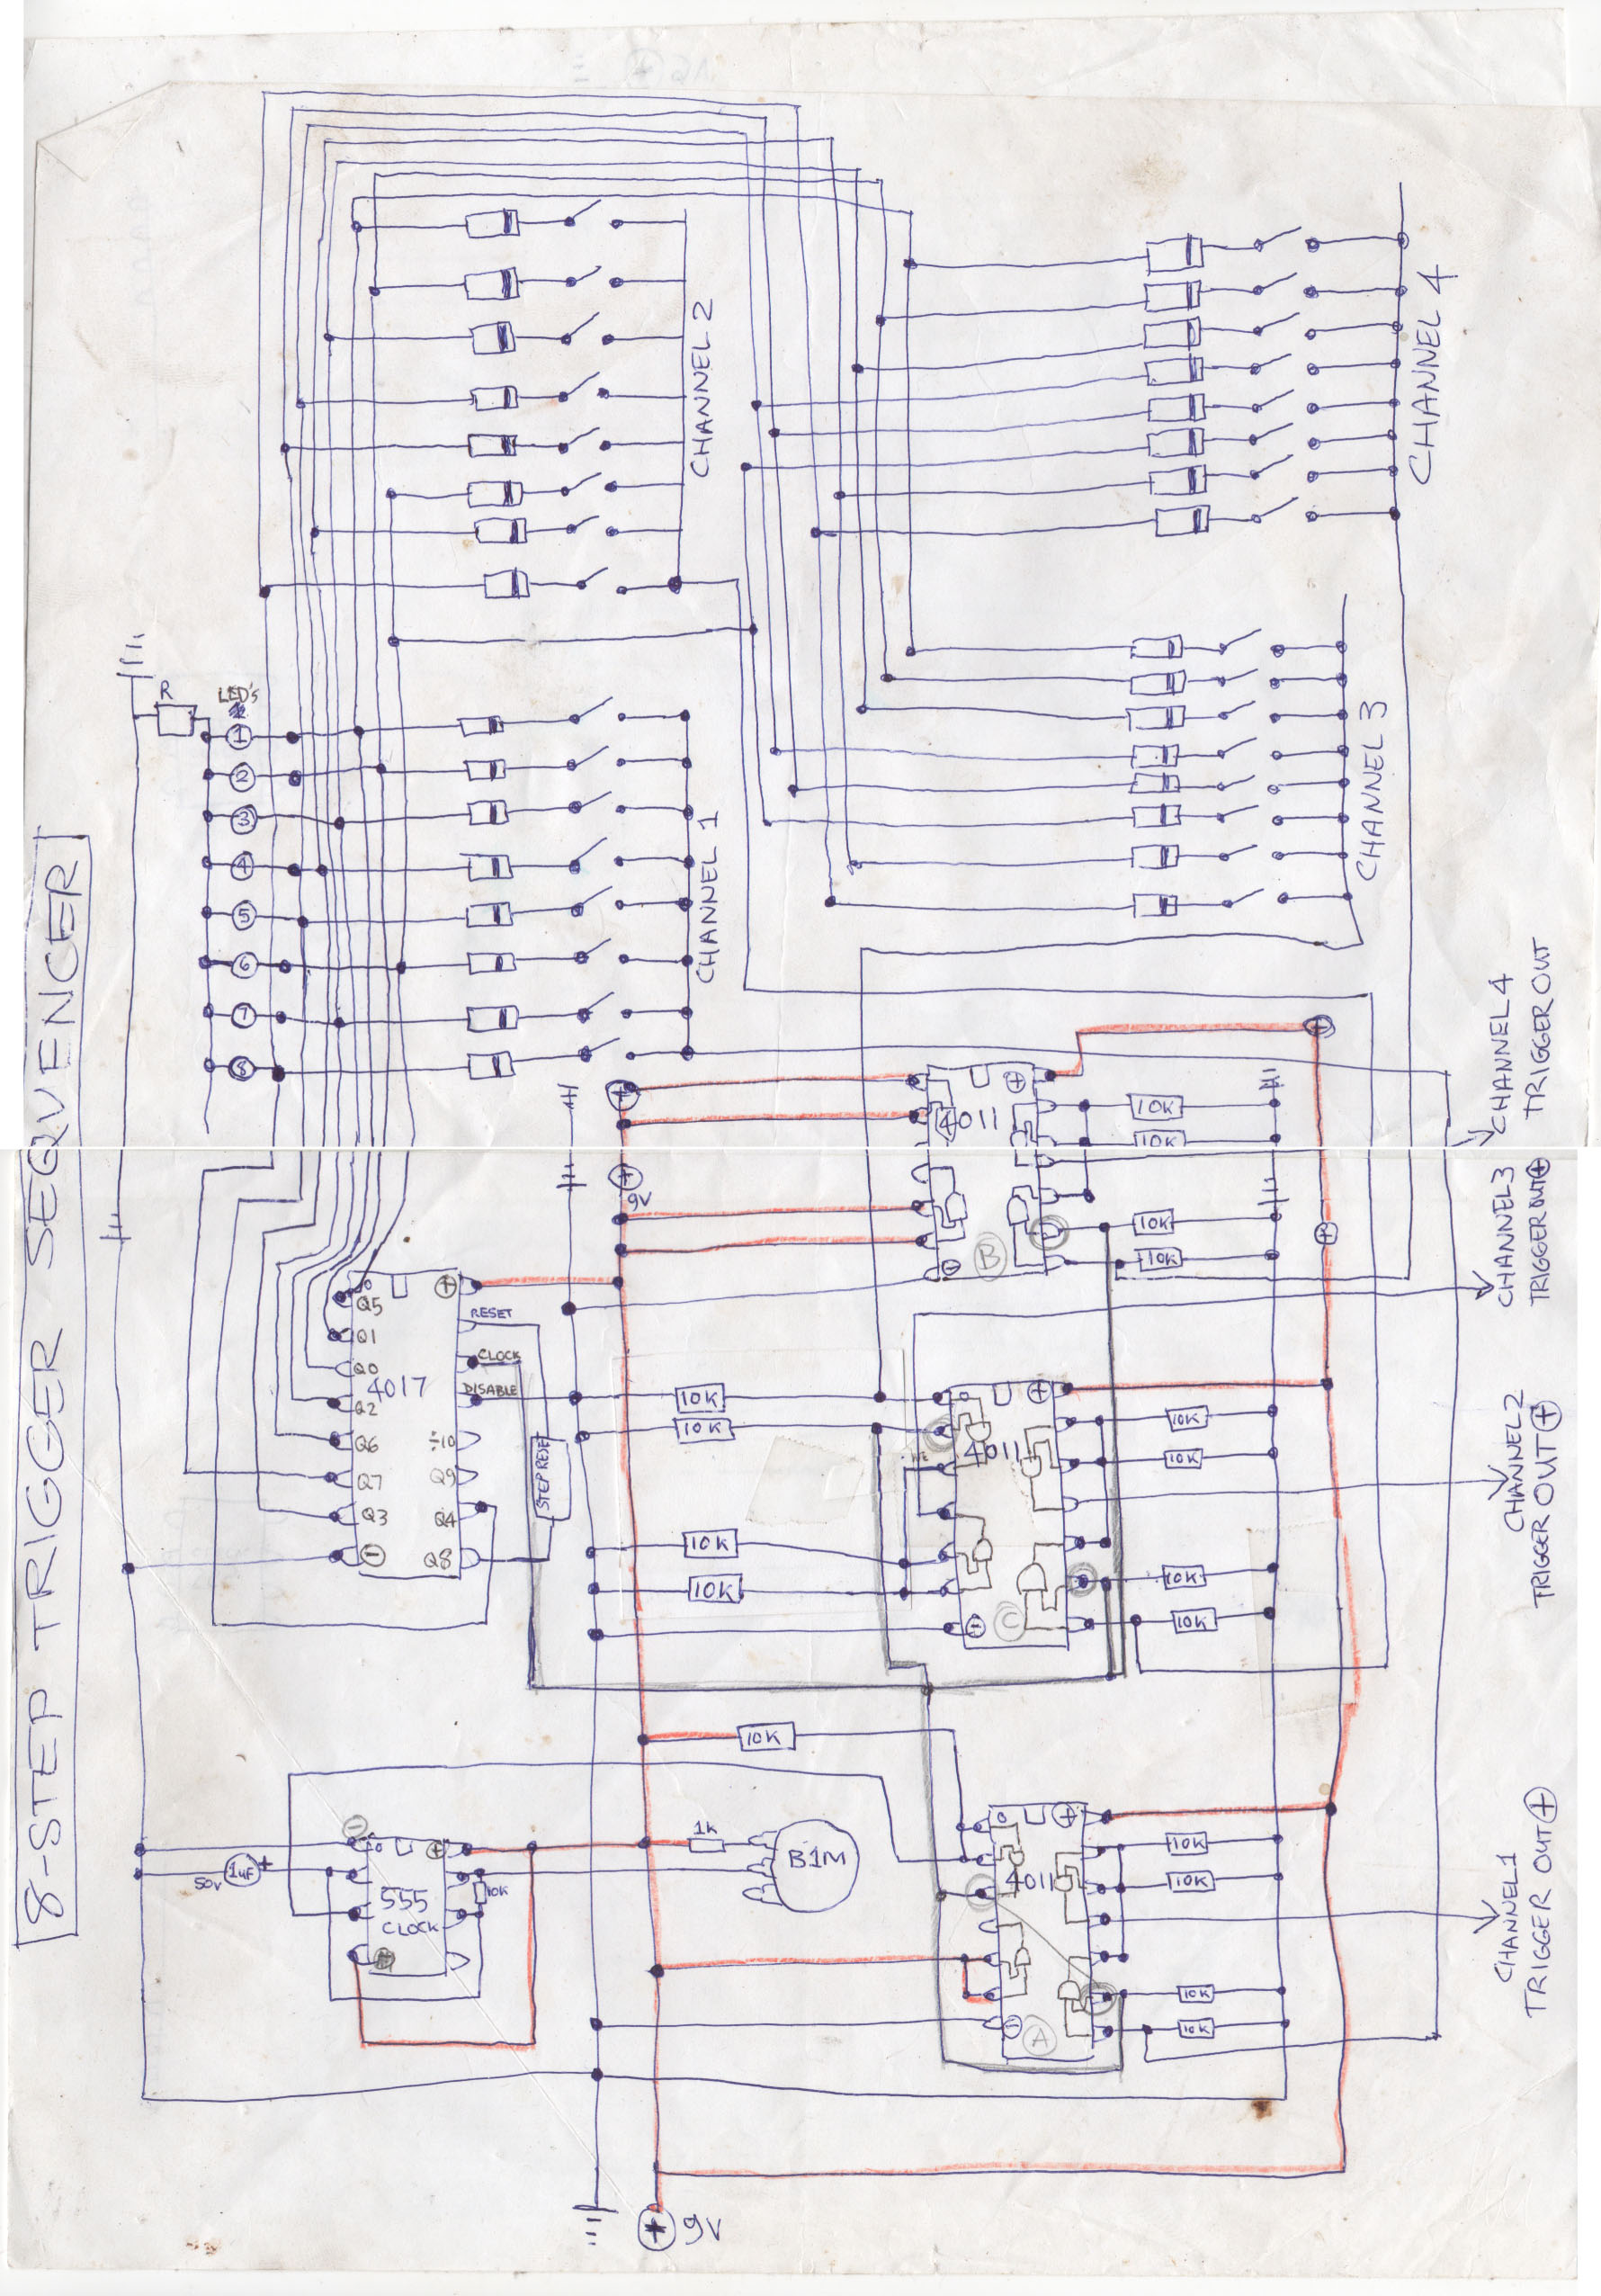 8-STEP TRIGGER SEQUENCER
R
LED's
1
2
3
4
5
6
7
8
CHANNEL 2
CHANNEL 4
CHANNEL 1
CHANNEL 3
CHANNEL 4
TRIGGER OUT
CHANNEL 3
TRIGGER OUT +
CHANNEL 2
TRIGGER OUT +
CHANNEL 1
TRIGGER OUT +
+
+
9V
+
4011
10K
10K
10K
10K
B
-
+
+
Q5
Q1
Q0
4017
Q2
Q6
Q7
Q3
-
+
RESET
CLOCK
DISABLE
÷10
Q9
Q4
Q8
STEP RESET
10K
10K
10K
10K
+
4011
10K
10K
10K
10K
C
-
10K
1K
B1M
50V
1uF
+
-
+
555
CLOCK
10K
+
4011
10K
10K
10K
10K
A
-
+ 9V